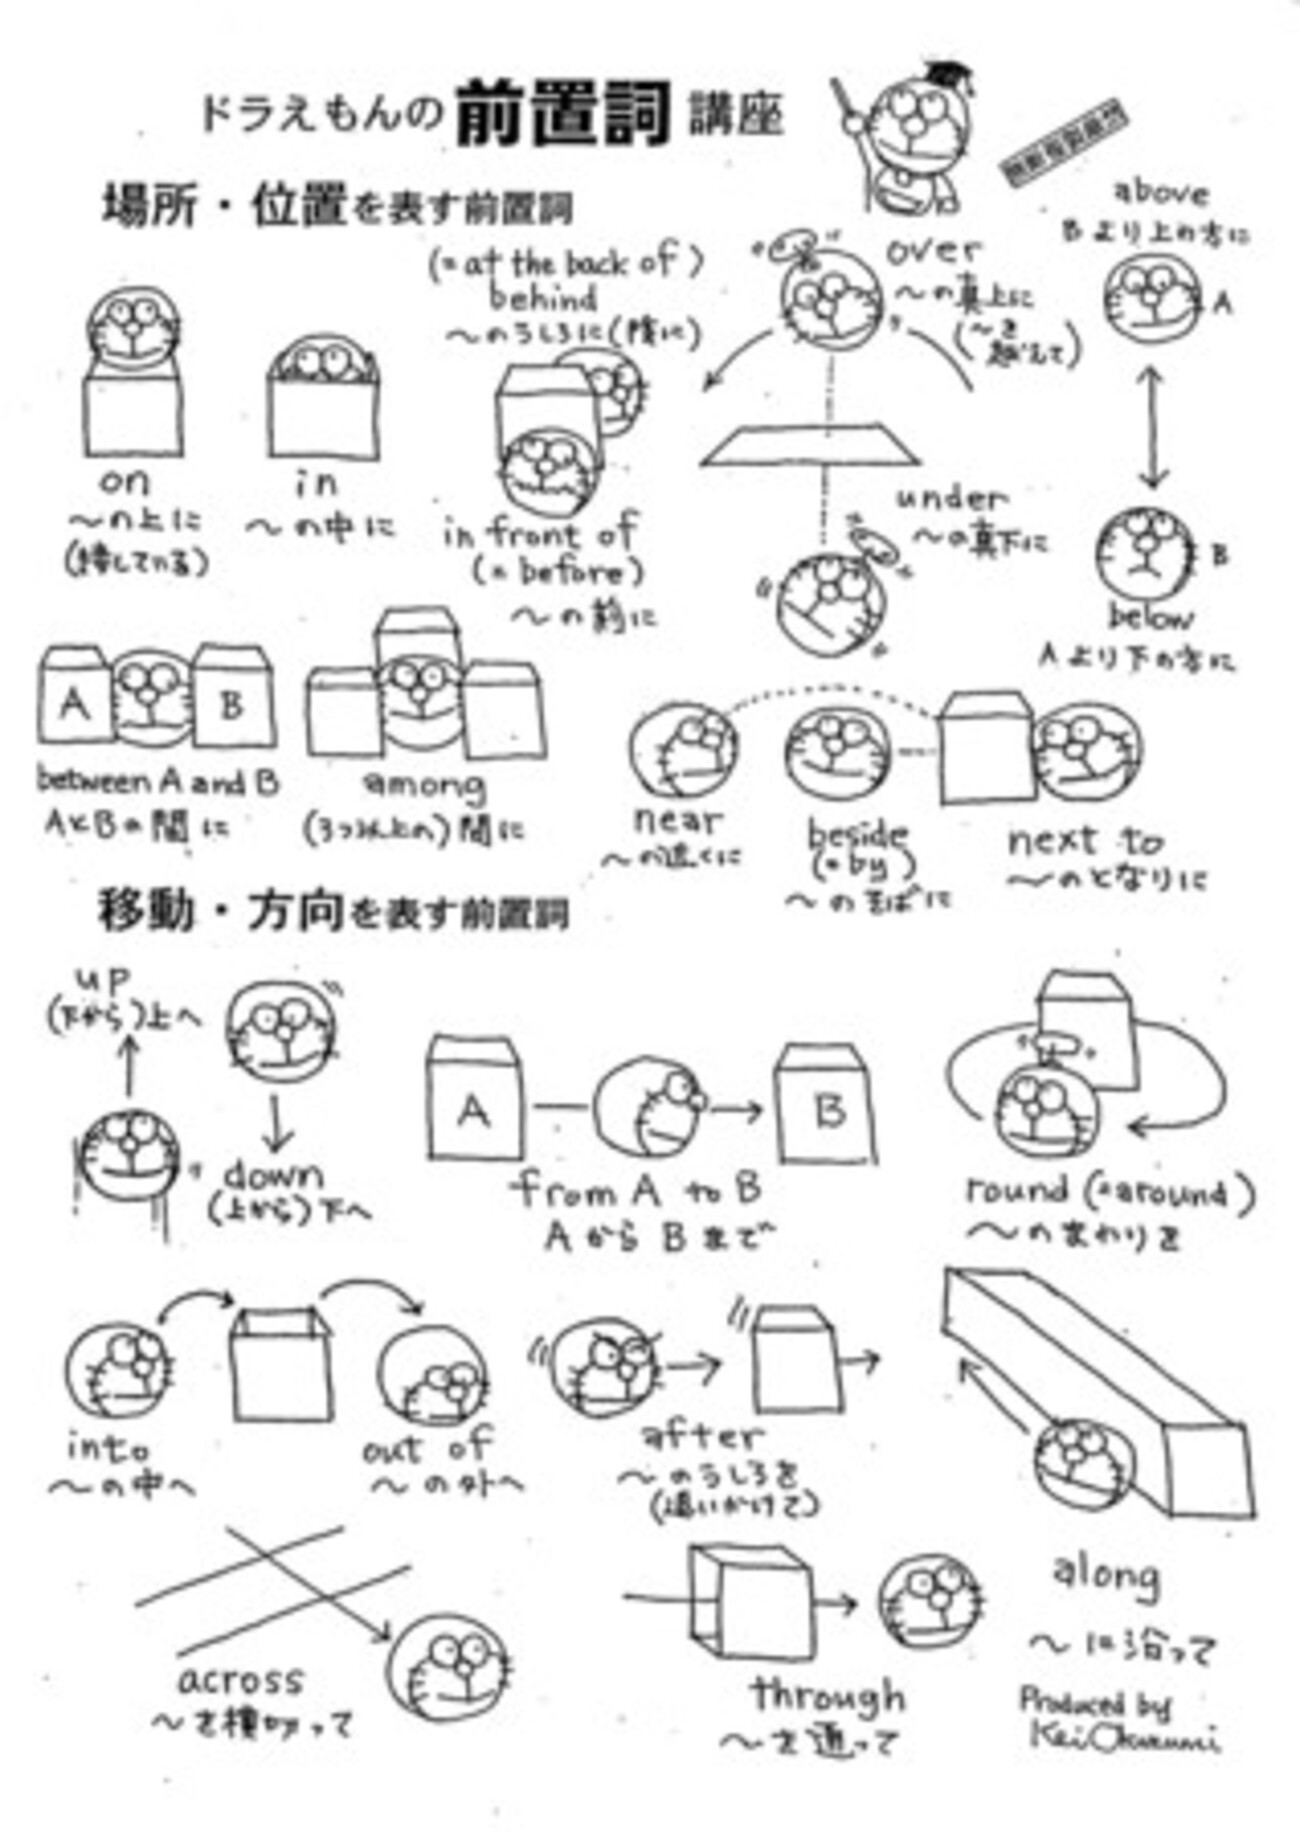 ドラえもんの前置詞講座
無断複製厳禁
場所・位置を表す前置詞
above
Bより上の方に
A
(=at the back of)
behind
〜のうしろに(陰に)
over
〜の真上に
(〜を
越えて)
on
〜の上に
(接している)
in
〜の中に
in front of
(=before)
〜の前に
under
〜の真下に
B
below
Aより下の方に
A
B
between A and B
AとBの間に
among
(3つ以上の)間に
near
〜の近くに
beside
(=by)
〜のそばに
next to
〜のとなりに
移動・方向を表す前置詞
up
(下から)上へ
down
(上から)下へ
A
B
from A to B
AからBまで
round (=around)
〜のまわりを
into
〜の中へ
out of
〜の外へ
after
〜のうしろを
(追いかけて)
along
〜に沿って
across
〜を横切って
through
〜を通って
Produced by
Kei